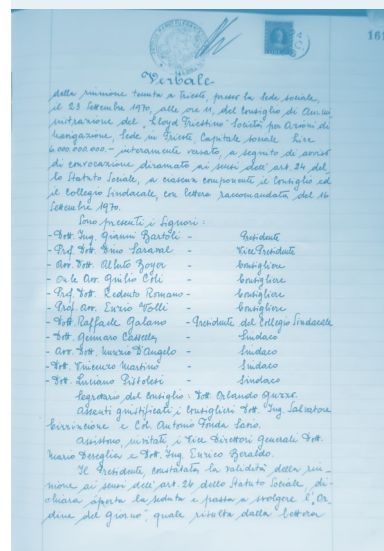 161
Verbale
della riunione tenuta a Trieste, presso la Sede sociale,
il 23 Settembre 1970, alle ore 11, del Consiglio di Ammi
nistrazione del "Lloyd Triestino" Società per Azioni di
Navigazione, Sede in Trieste, Capitale sociale Lire
6.000.000.000.- interamente versato, a seguito di avvisi
di convocazione diramato ai sensi dell'art. 24 del
lo Statuto Sociale, a ciascun componente il Consiglio ed
il Collegio Sindacale, con lettera raccomandata del 16
Settembre 1970.
Sono presenti i Signori:
- Dott. Ing. Gianni Bartoli - Presidente
- Prof. Dott. Dino Saraval - Vice Presidente
- Avv. Dott. Alberto Boyer - Consigliere
- On.le Avv. Giulio Coli - Consigliere
- Prof. Dott. Redento Romano - Consigliere
- Prof. Avv. Enzio Volli - Consigliere
- Dott. Raffaele Galano - Presidente del Collegio Sindacale
- Dott. Gennaro - Sindaco
- Avv. Dott. Nunzio D'Angelo - Sindaco
- Dott. Vincenzo Martino - Sindaco
- Dott. Luciano Pistolesi - Sindaco
Segretario del Consiglio: Dott. Orlando
Assenti giustificati i Consiglieri Dott. Ing. Salvatore
e Col. Antonio Fonda Savio.
Assistono, invitati, i Vice Direttori Generali Dott.
Mario Dereglia e Dott. Ing. Enrico Beraldo.
Il Presidente, constatata la validità della riu-
nione ai sensi dell'art. 24 dello Statuto Sociale, di-
chiara aperta la seduta e passa a svolgere l'"Or
dine del Giorno", quale risulta dalla lettera